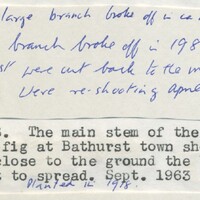 large branch broke off in ca
branch broke off in 198
were cut back to the m
Were re-shooting
s. The main stem of the
fig at Bathurst town sh
close to the ground the
t to spread. Sept. 1963
Planted in